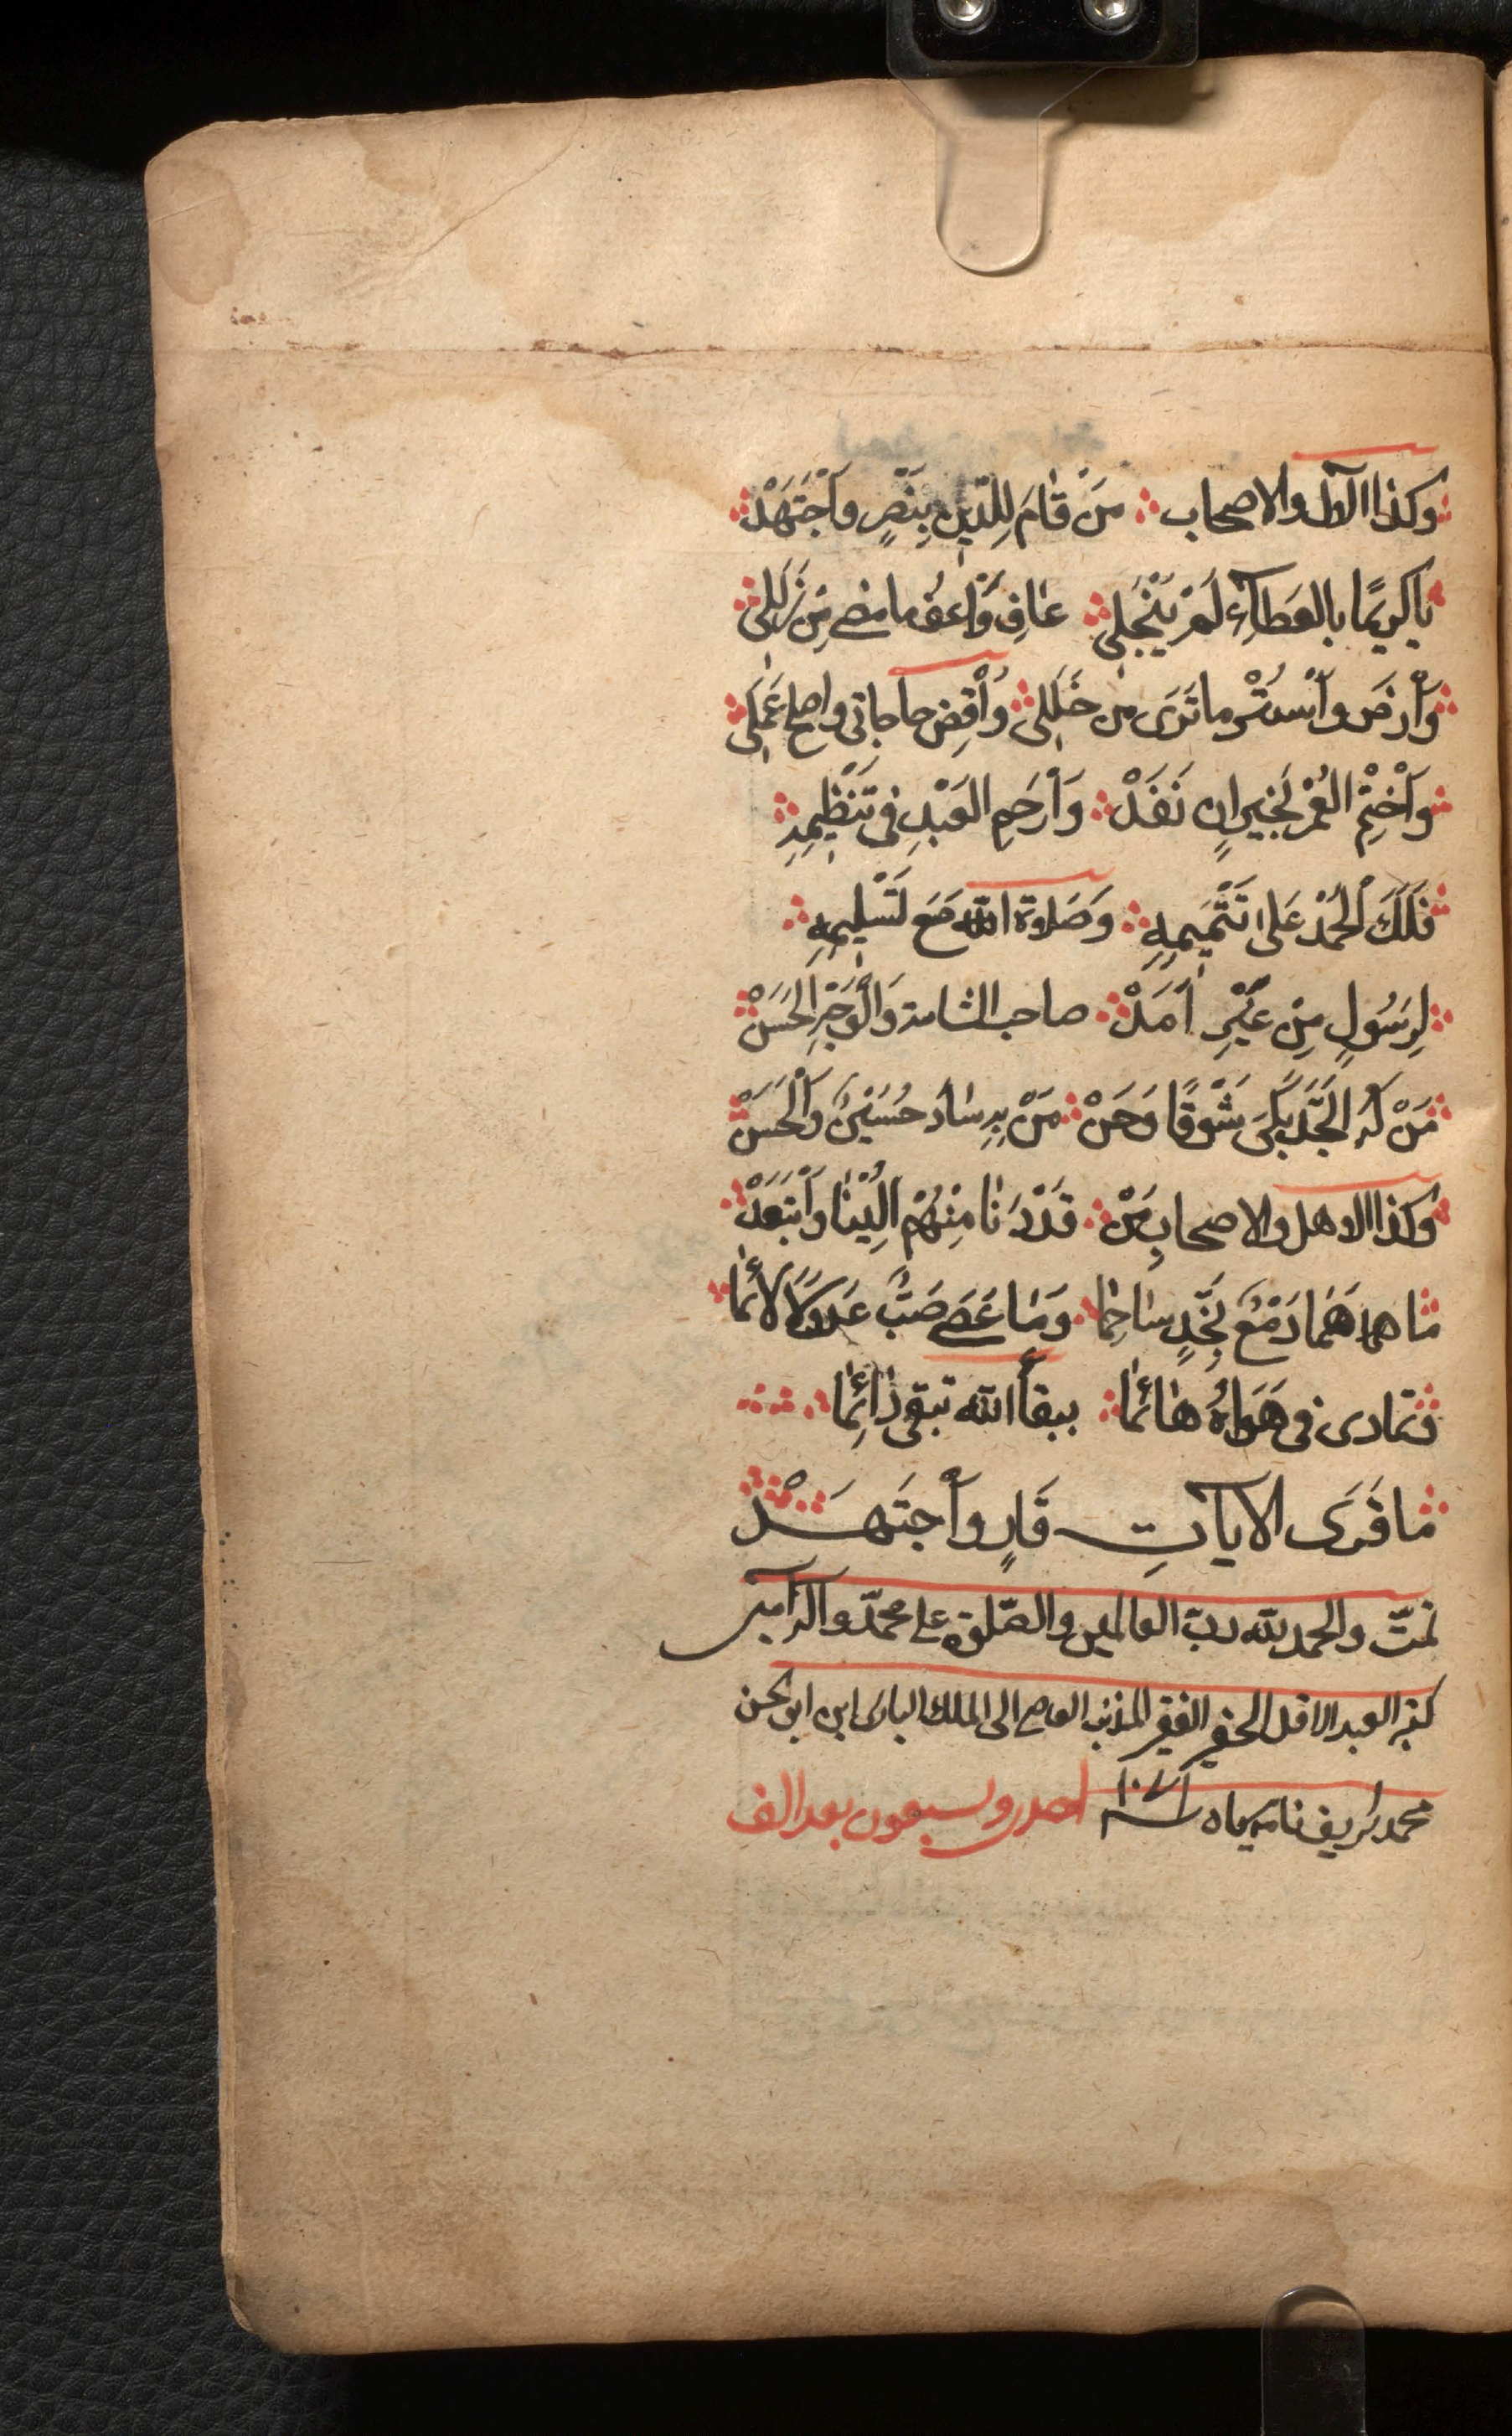 وكذا الآل والاصحاب مَنْ قَامَ لِلدِّينِ بِنَصْرٍ وَاجْتَهَدْ
يَا كَرِيمًا بِالعَطَاءِ لَمْ يَبْخَلِ عَافِ وَاعْفُ مَا مضى مِن زَلَلِي
وَارْضَ وَاسْتُرْ مَا تَرَى مِن خَلَلِي وَاقْضِ حاجاتي واصلح عَمَلِي
وَاخْتِمِ العُمْرَ بِخَيرٍ اِن نَفَدْ وَارْحَمِ العَبْدِ فى تَنْظِيمِهِ
فَلَكَ الْحَمْدُ عَلَى تَتْمِيمِهِ وَصَلَاوة الله مَعَ تَسْلِيمِهِ
لِرَسُولٍ مِن غَيْرِ اَمَدْ صاحب الشامة وَالْوَجْهِ الحَسَنْ
مَنْ لَهُ الجِذْعُ بَكَى شَوْقًا وَحَنْ مَنْ بِهِ سَادَ حُسَيْنٌ وَالْحَسَنْ
وكذا الاهل والاصحابِ مَنْ قَدْ دَنَا مِنْهُمْ اِلَيْنَا وَابْتَعَدْ
مَا هما هَمَا دَمْعٌ بِخَدٍّ سَاجِمَا وَمَا عَصَى صَبٌّ عَذُولًا لَائِمَا
فتمادى فى هَوَاهُ هَائِمَا ببقاء الله تبقى دَائِمَا
مَا قَرَى الاياتِ قَارٍ وَاجْتَهَدْ
تمّت والحمد لله ربّ العالمين والصّلوة على محمّد وآله آمين
كتبه العبد الاقل الحقير الفقير المذنب العاصى الى الملك البارى ابن ابو الحسن
محمد شريف سنة ١٠٧١ احدى وسبعون بعد الف